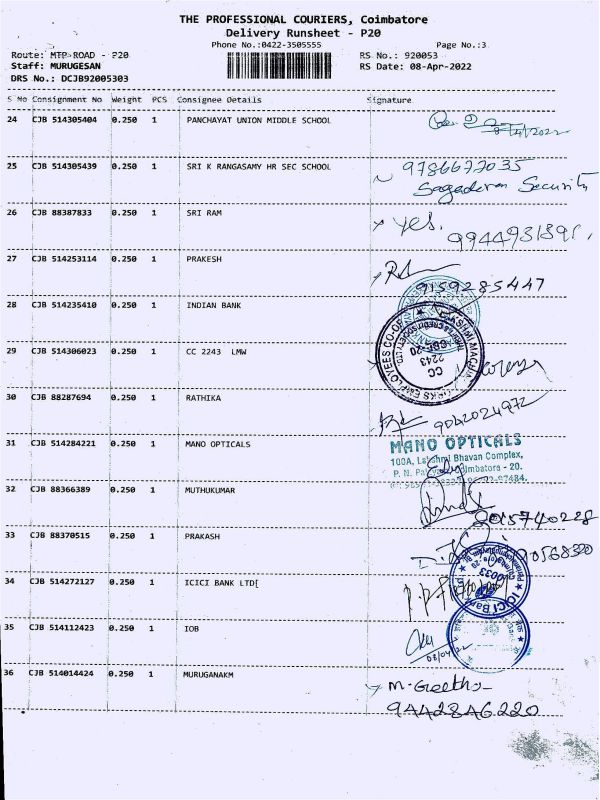 THE PROFESSIONAL COURIERS, Coimbatore
Delivery Runsheet - P20
Phone No.:0422-3505555 Page No.:3
Route: MTP ROAD - P20 RS No.: 920053
Staff: MURUGESAN RS Date: 08-Apr-2022
DRS No.: DCJB92005303
S No Consignment No Weight PCS Consignee Details Signature
24 CJB 514305404 0.250 1 PANCHAYAT UNION MIDDLE SCHOOL
8/4/2022
25 CJB 514305439 0.250 1 SRI K RANGASAMY HR SEC SCHOOL 9786677035
Security
26 CJB 88387833 0.250 1 SRI RAM yes.
9944931891
27 CJB 514253114 0.250 1 PRAKESH
9159285447
28 CJB 514235410 0.250 1 INDIAN BANK
29 CJB 514306023 0.250 1 CC 2243 LMW
CC 2243
30 CJB 88287694 0.250 1 RATHIKA
9042024972
31 CJB 514284221 0.250 1 MANO OPTICALS MANO OPTICALS
100A, Lakshmi Bhavan Complex,
Coimbatore - 20.
32 CJB 88366389 0.250 1 MUTHUKUMAR
8015740228
33 CJB 88370515 0.250 1 PRAKASH
34 CJB 514272127 0.250 1 ICICI BANK LTD[
ICICI Bank
35 CJB 514112423 0.250 1 IOB
36 CJB 514014424 0.250 1 MURUGANAKM M. Geetha
9442846220